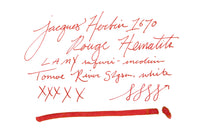 Jacques Herbin 1670
Rouge Hematite
LAMY safari - medium
Tomoe River 52gsm. white
XXXXX